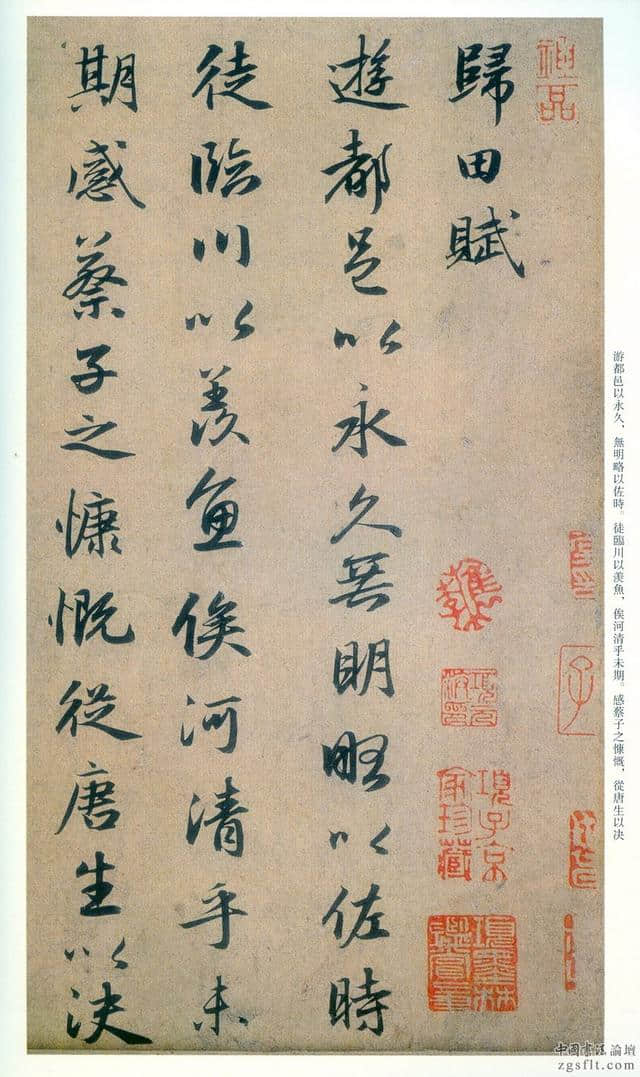 歸田賦
遊都邑以永久無明略以佐時
徒臨川以羨魚俟河清乎未
期感蔡子之慷慨從唐生以決
項子京
家珍藏
游都邑以永久、無明略以佐時。徒臨川以羨魚、俟河清乎未期。感蔡子之慷慨、從唐生以決
中國書法論壇
zgsflt.com